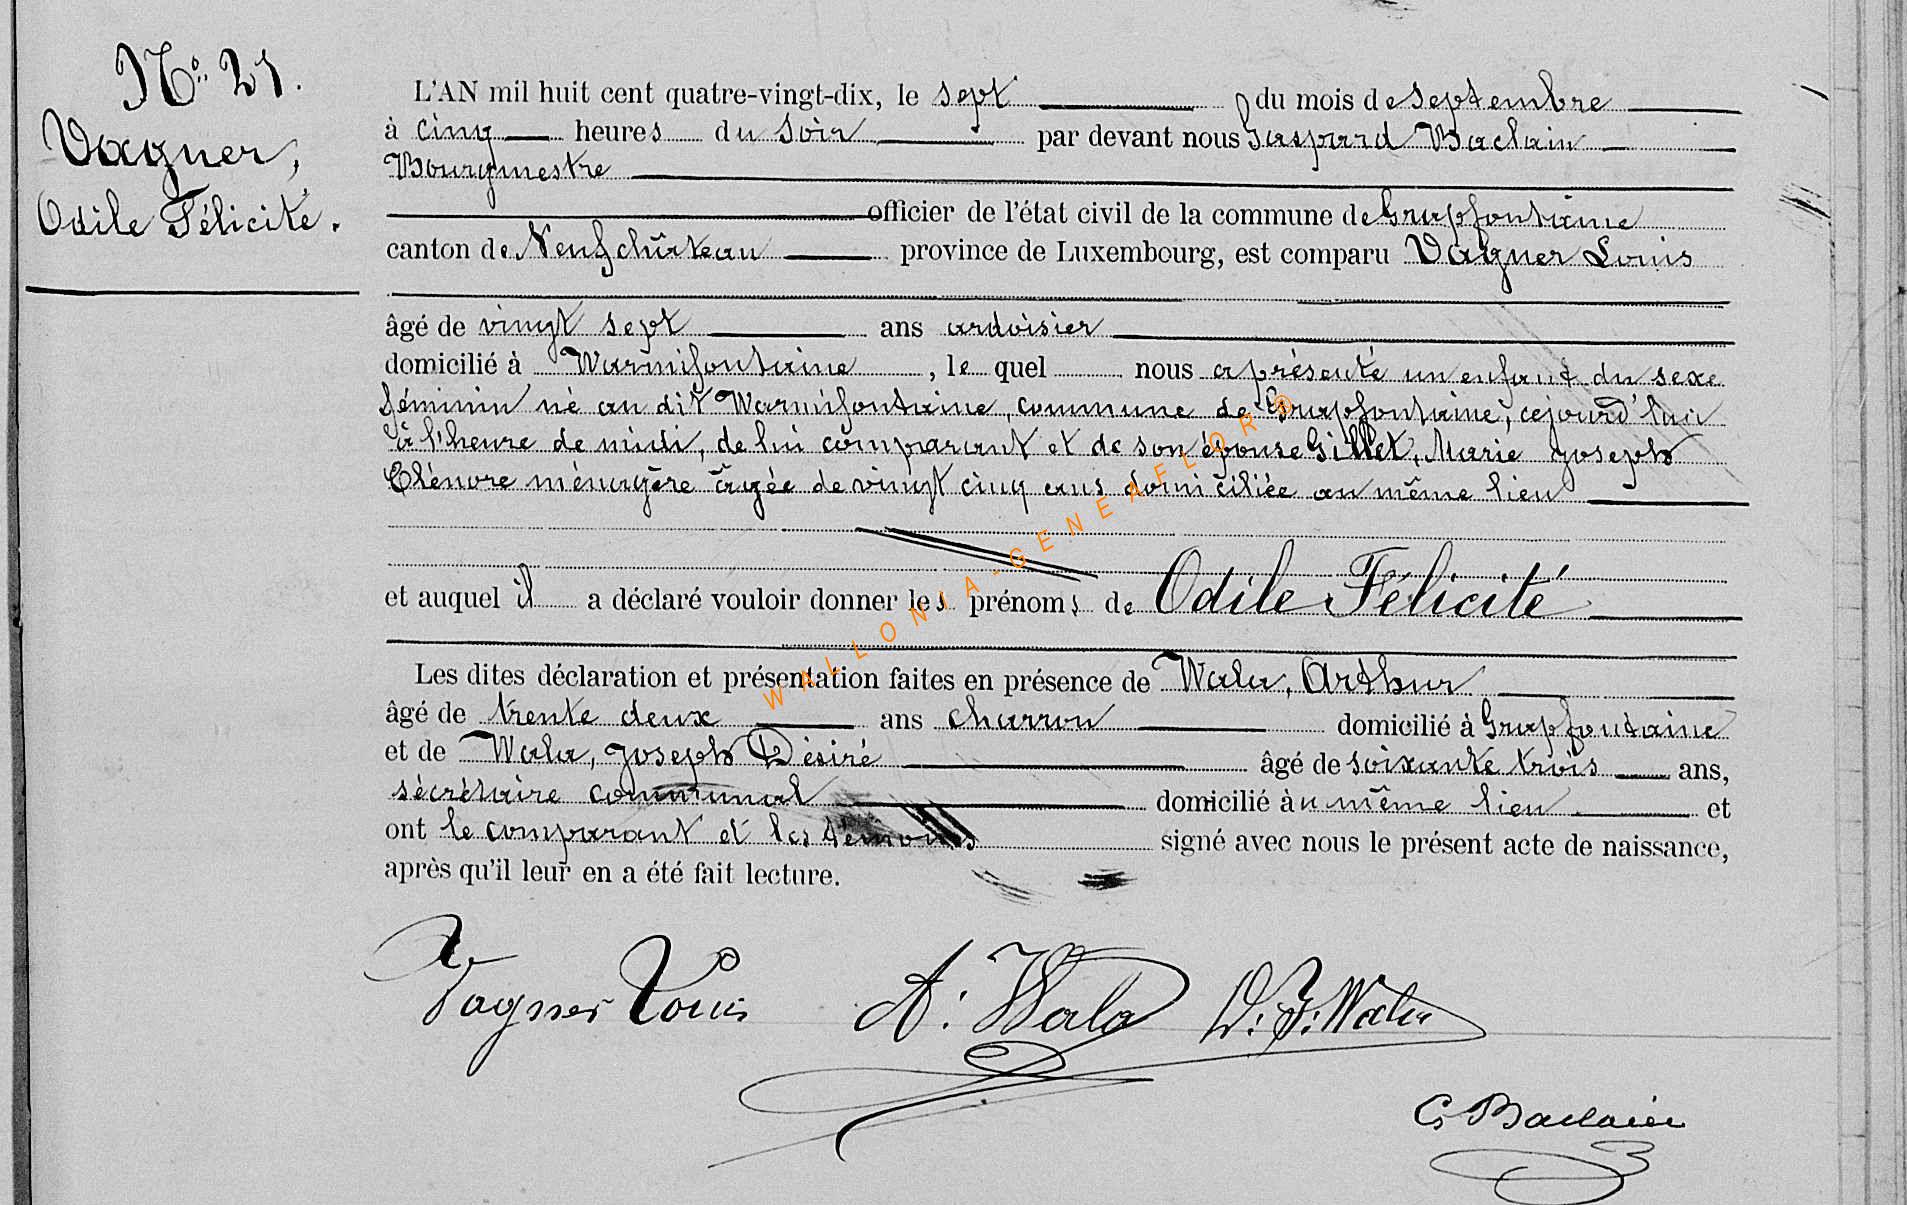 No. 21.
Vagner,
Odile Félicité.
L'AN mil huit cent quatre-vingt-dix, le sept du mois de septembre
à cinq heures du soir par devant nous Gaspard Baclain
Bourgmestre
officier de l'état civil de la commune de Grapfontaine
canton de Neufchâteau province de Luxembourg, est comparu Vagner Louis
âgé de vingt sept ans ardoisier
domicilié à Warmifontaine, le quel nous a présenté un enfant du sexe
féminin né au dit Warmifontaine, commune de Grapfontaine, cejourd'hui
à l'heure de midi, de lui comparant et de son épouse Gillet, Marie Joseph
Elénore ménagère âgée de vingt cinq ans domiciliée au même lieu
et auquel il a déclaré vouloir donner les prénoms de Odile Félicité
Les dites déclaration et présentation faites en présence de Wala, Arthur
âgé de trente deux ans charron domicilié à Grapfontaine
et de Wala, Joseph Désiré âgé de soixante trois ans,
sécrétaire communal domicilié au même lieu et
ont le comparant et les témoins signé avec nous le présent acte de naissance,
après qu'il leur en a été fait lecture.
Vagner Louis A. Wala D. J. Wala
G Baclain
WALLONIA-GENEAFLOR ®